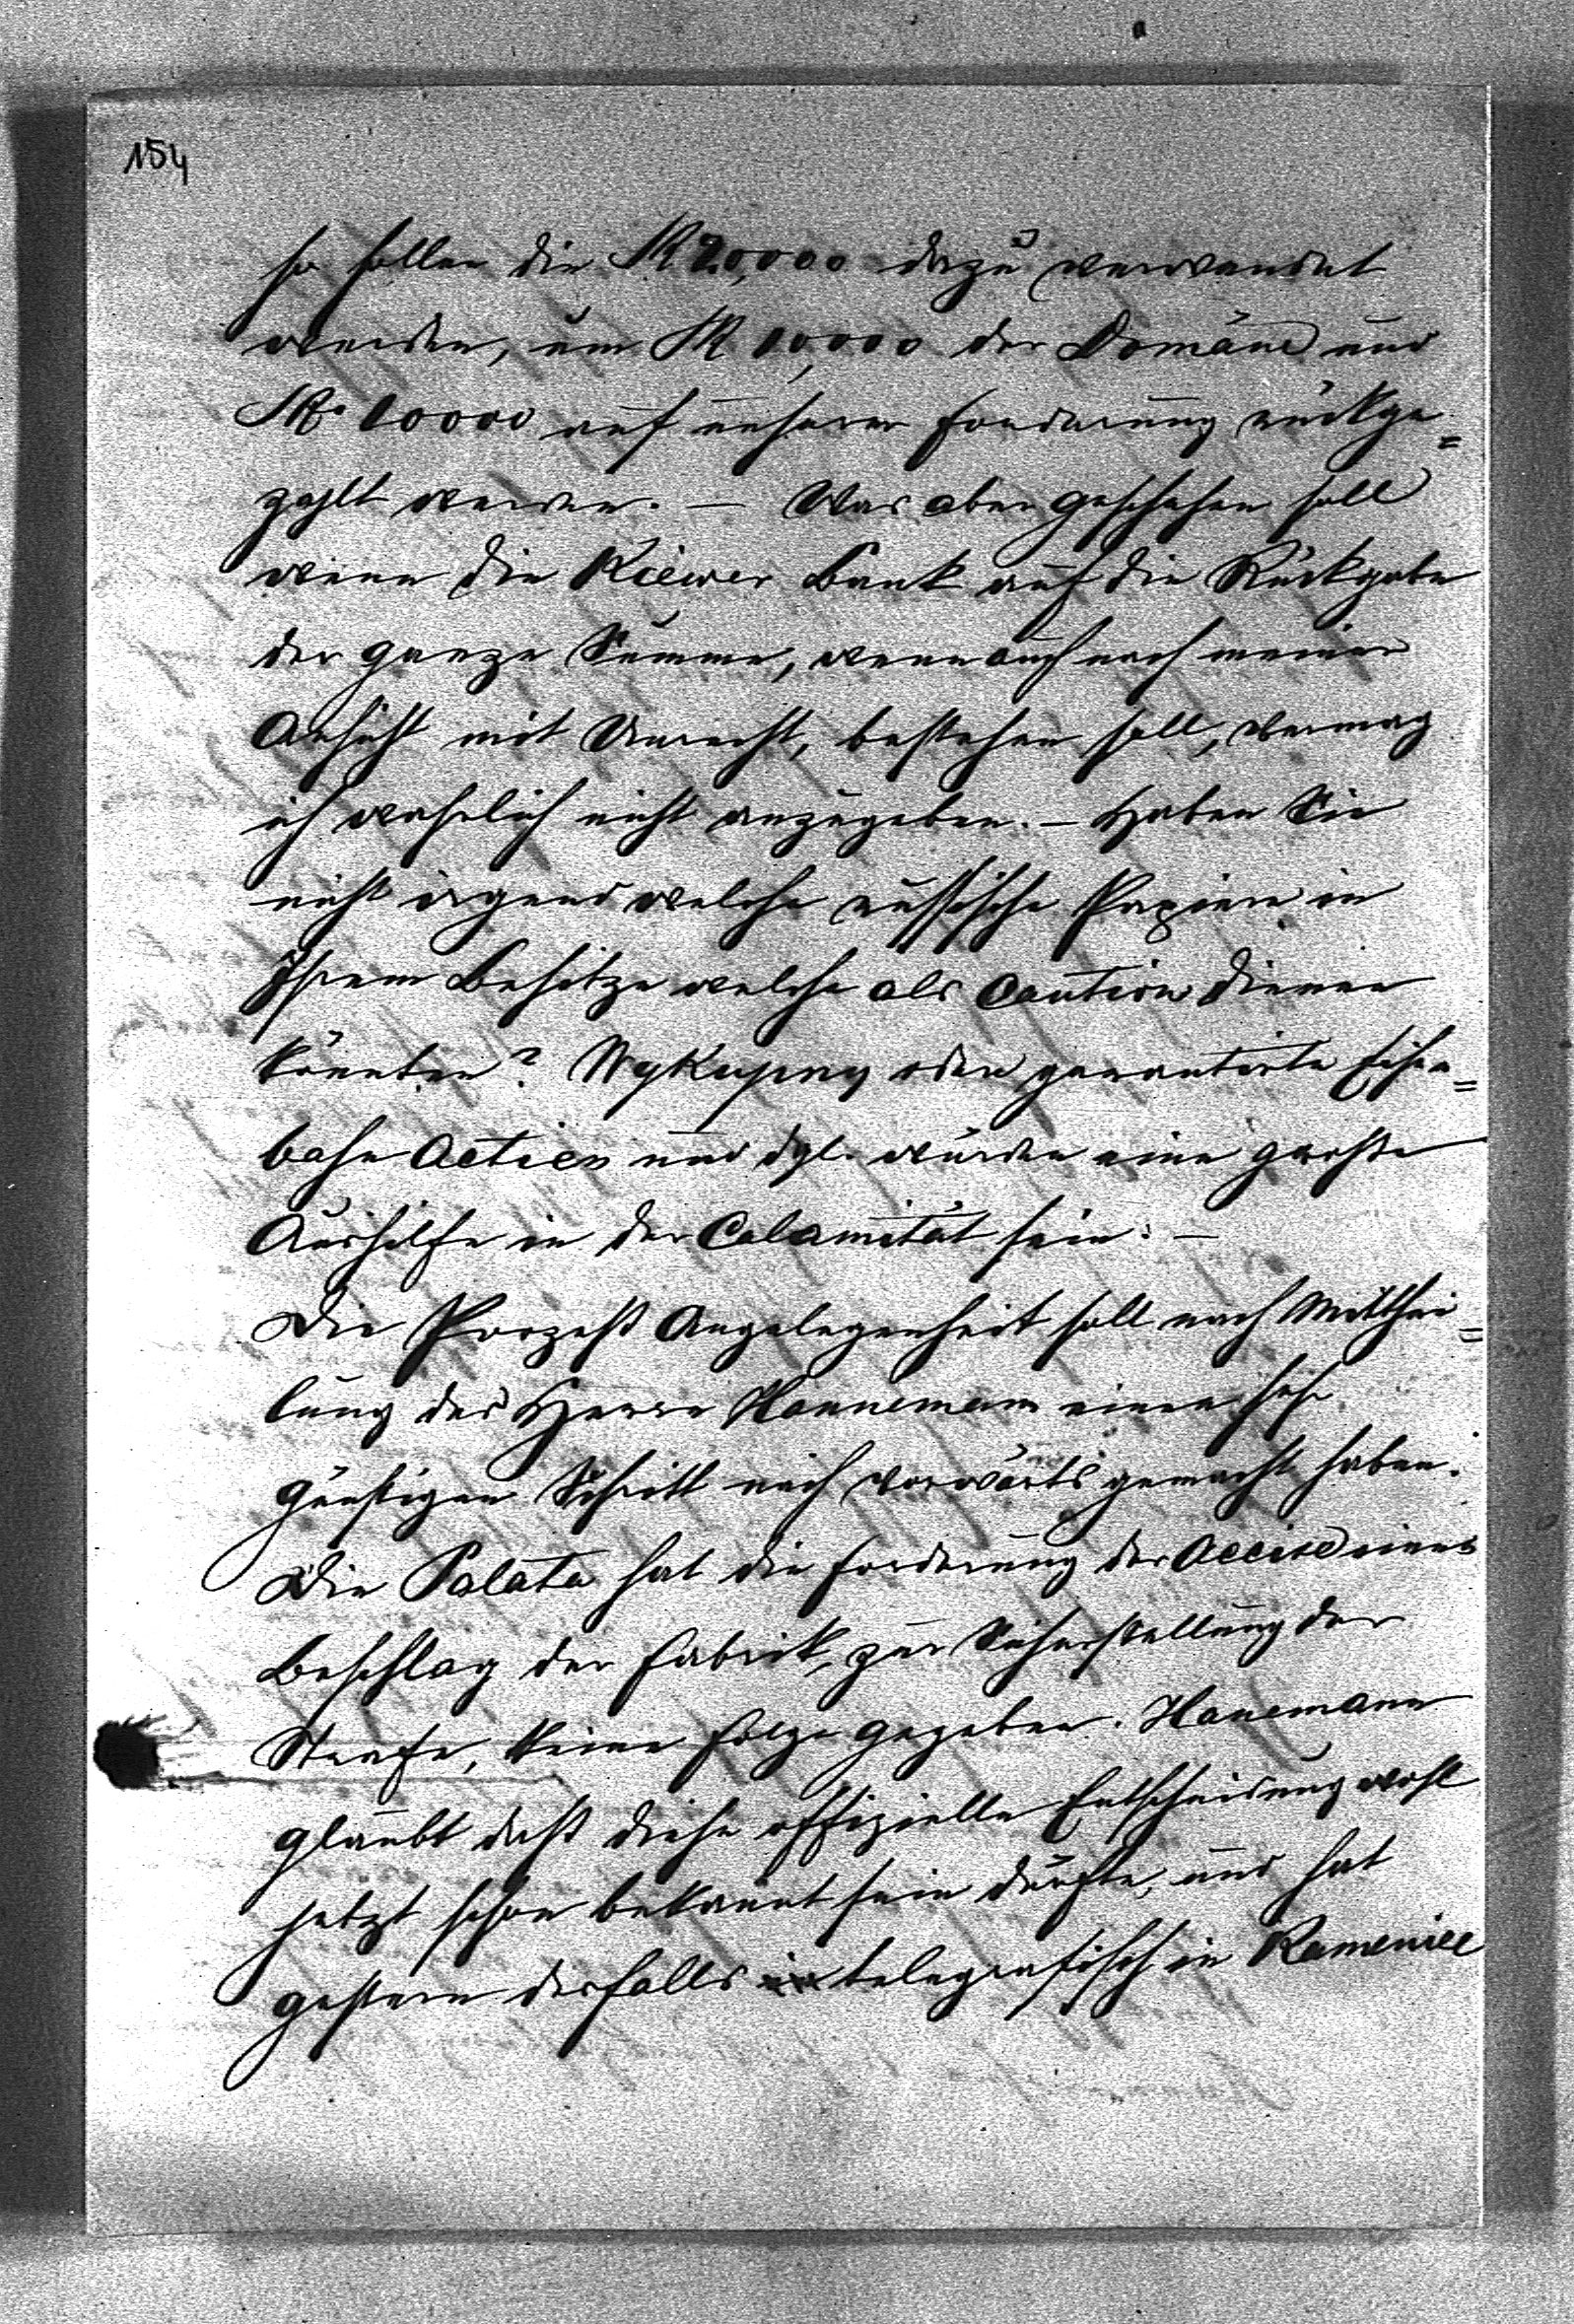 154
so sollen die SR 20,000 dazu verwendet
werden, um SR 10,000 der Domäne und
SR. 10000 auf unserer Forderung rückge=
zahlt werden. — Was aber geschehen soll
wenn die Kiewer Bank auf die Rückgabe
der ganze Summe, wenn auch nach meiner
Ansicht mit Unrecht, bestehen soll, vermag
ich wahrlich nicht anzugeben. — Haben Sie
nicht irgend welche russische Papiere in
Ihrem Besitze welche als Caution dienen
könnten? Wykupny oder garantirte Eisen=
bahn Actien und dgl. würden eine große
Aushilfe in der Calamität sein. —
Die Prozeß Angelegenheit soll nach Mitthei=
lung des Herrn Hannemann einen sehr
günstigen Schritt nach vorwärts gemacht haben.
Die Palata hat die Forderung der Accise eines
Beschlag der Fabrik, zur Sicherstellung der
Strafe, keine Folge gegeben. Hanemann
glaubt daß diese offizielle Entscheidung wohl
jetzt schon bekannt sein dürfte, und hat
gestern desfalls telegrafisch in Kameniec